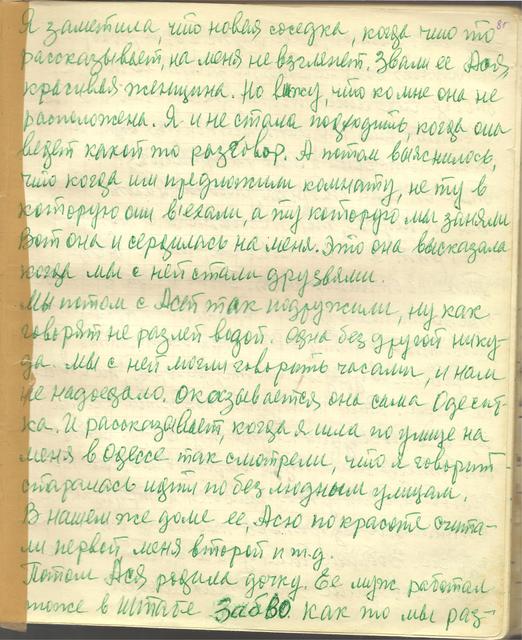 85
Я заметила, что новая соседка, когда что то
рассказывает, на меня не взглянет. Звали ее Ася,
красивая женщина. Но вижу, что ко мне она не
расположена. Я и не стала подходить, когда она
ведет какой то разговор. А потом выяснилось,
что когда им предложили комнату, не ту в
которую они въехали, а ту которую мы заняли
Вот она и сердилась на меня. Это она высказала
когда мы с ней стали друзьями.
Мы потом с Асей так подружили, ну как
говорят не разлей водой. Одна без другой нику-
да. Мы с ней могли говорить часами, и нам
не надоедало. Оказывается она сама Одесит-
ка. И рассказывает, когда я шла по улице на
меня в Одессе так смотрели, что я говорит
старалась идти по безлюдным улицам.
В нашем же доме ее, Асю по красоте счита-
ли первой меня второй и т.д.
Потом Ася родила дочку. Ее муж работал
тоже в Штабе ЗабВО. Как то мы раз-